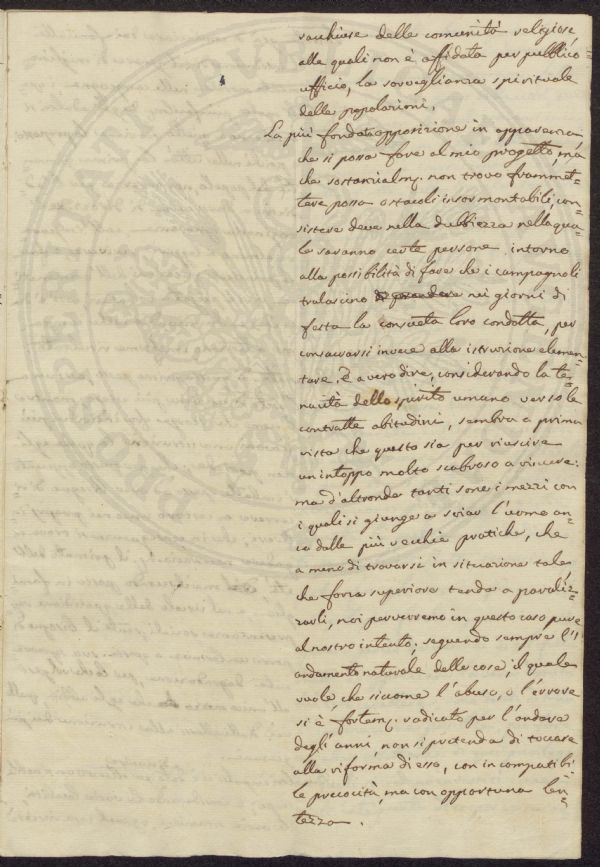 racchiuse delle comunità religiose,
alle quali non è affidata per pubblico
ufficio, la sorveglianza spirituale
delle popolazioni.
La più fondata opposizione in apparenza
che si possa fare al mio progetto, ma
che sostanzialm. non trovo frammet-
tere possa ostacoli insormontabili, con-
sistere deve nella dubbiezza nella qua-
le saranno certe persone intorno
alla possibilità di fare che i campagnoli
tralascino di prendere nei giorni di
festa la consueta loro condotta, per
consacrarsi invece alla istruzione elemen-
tare. È a vero dire, considerando la te-
nacità dello spirito umano verso le
contratte abitudini, sembra a prima
vista che questo sia per riuscire
un intoppo molto scabroso a vincere:
ma d'altronde tanti sono i mezzi con
i quali si giunge a sviar l'uomo an-
co dalle più vecchie pratiche, che
a meno di trovarsi in situazione tale,
che forza superiore tenda a paraliz-
zarli, noi perverremo in questo caso pure
al nostro intento; seguendo sempre l'
andamento naturale delle cose, il quale
vuole, che siccome l'abuso, o l'errore
si è fortem. radicato per l'andare
degli anni, non si pretenda di toccare
alla riforma di esso, con incompatibi-
le precocità, ma con opportuna len-
tezza.